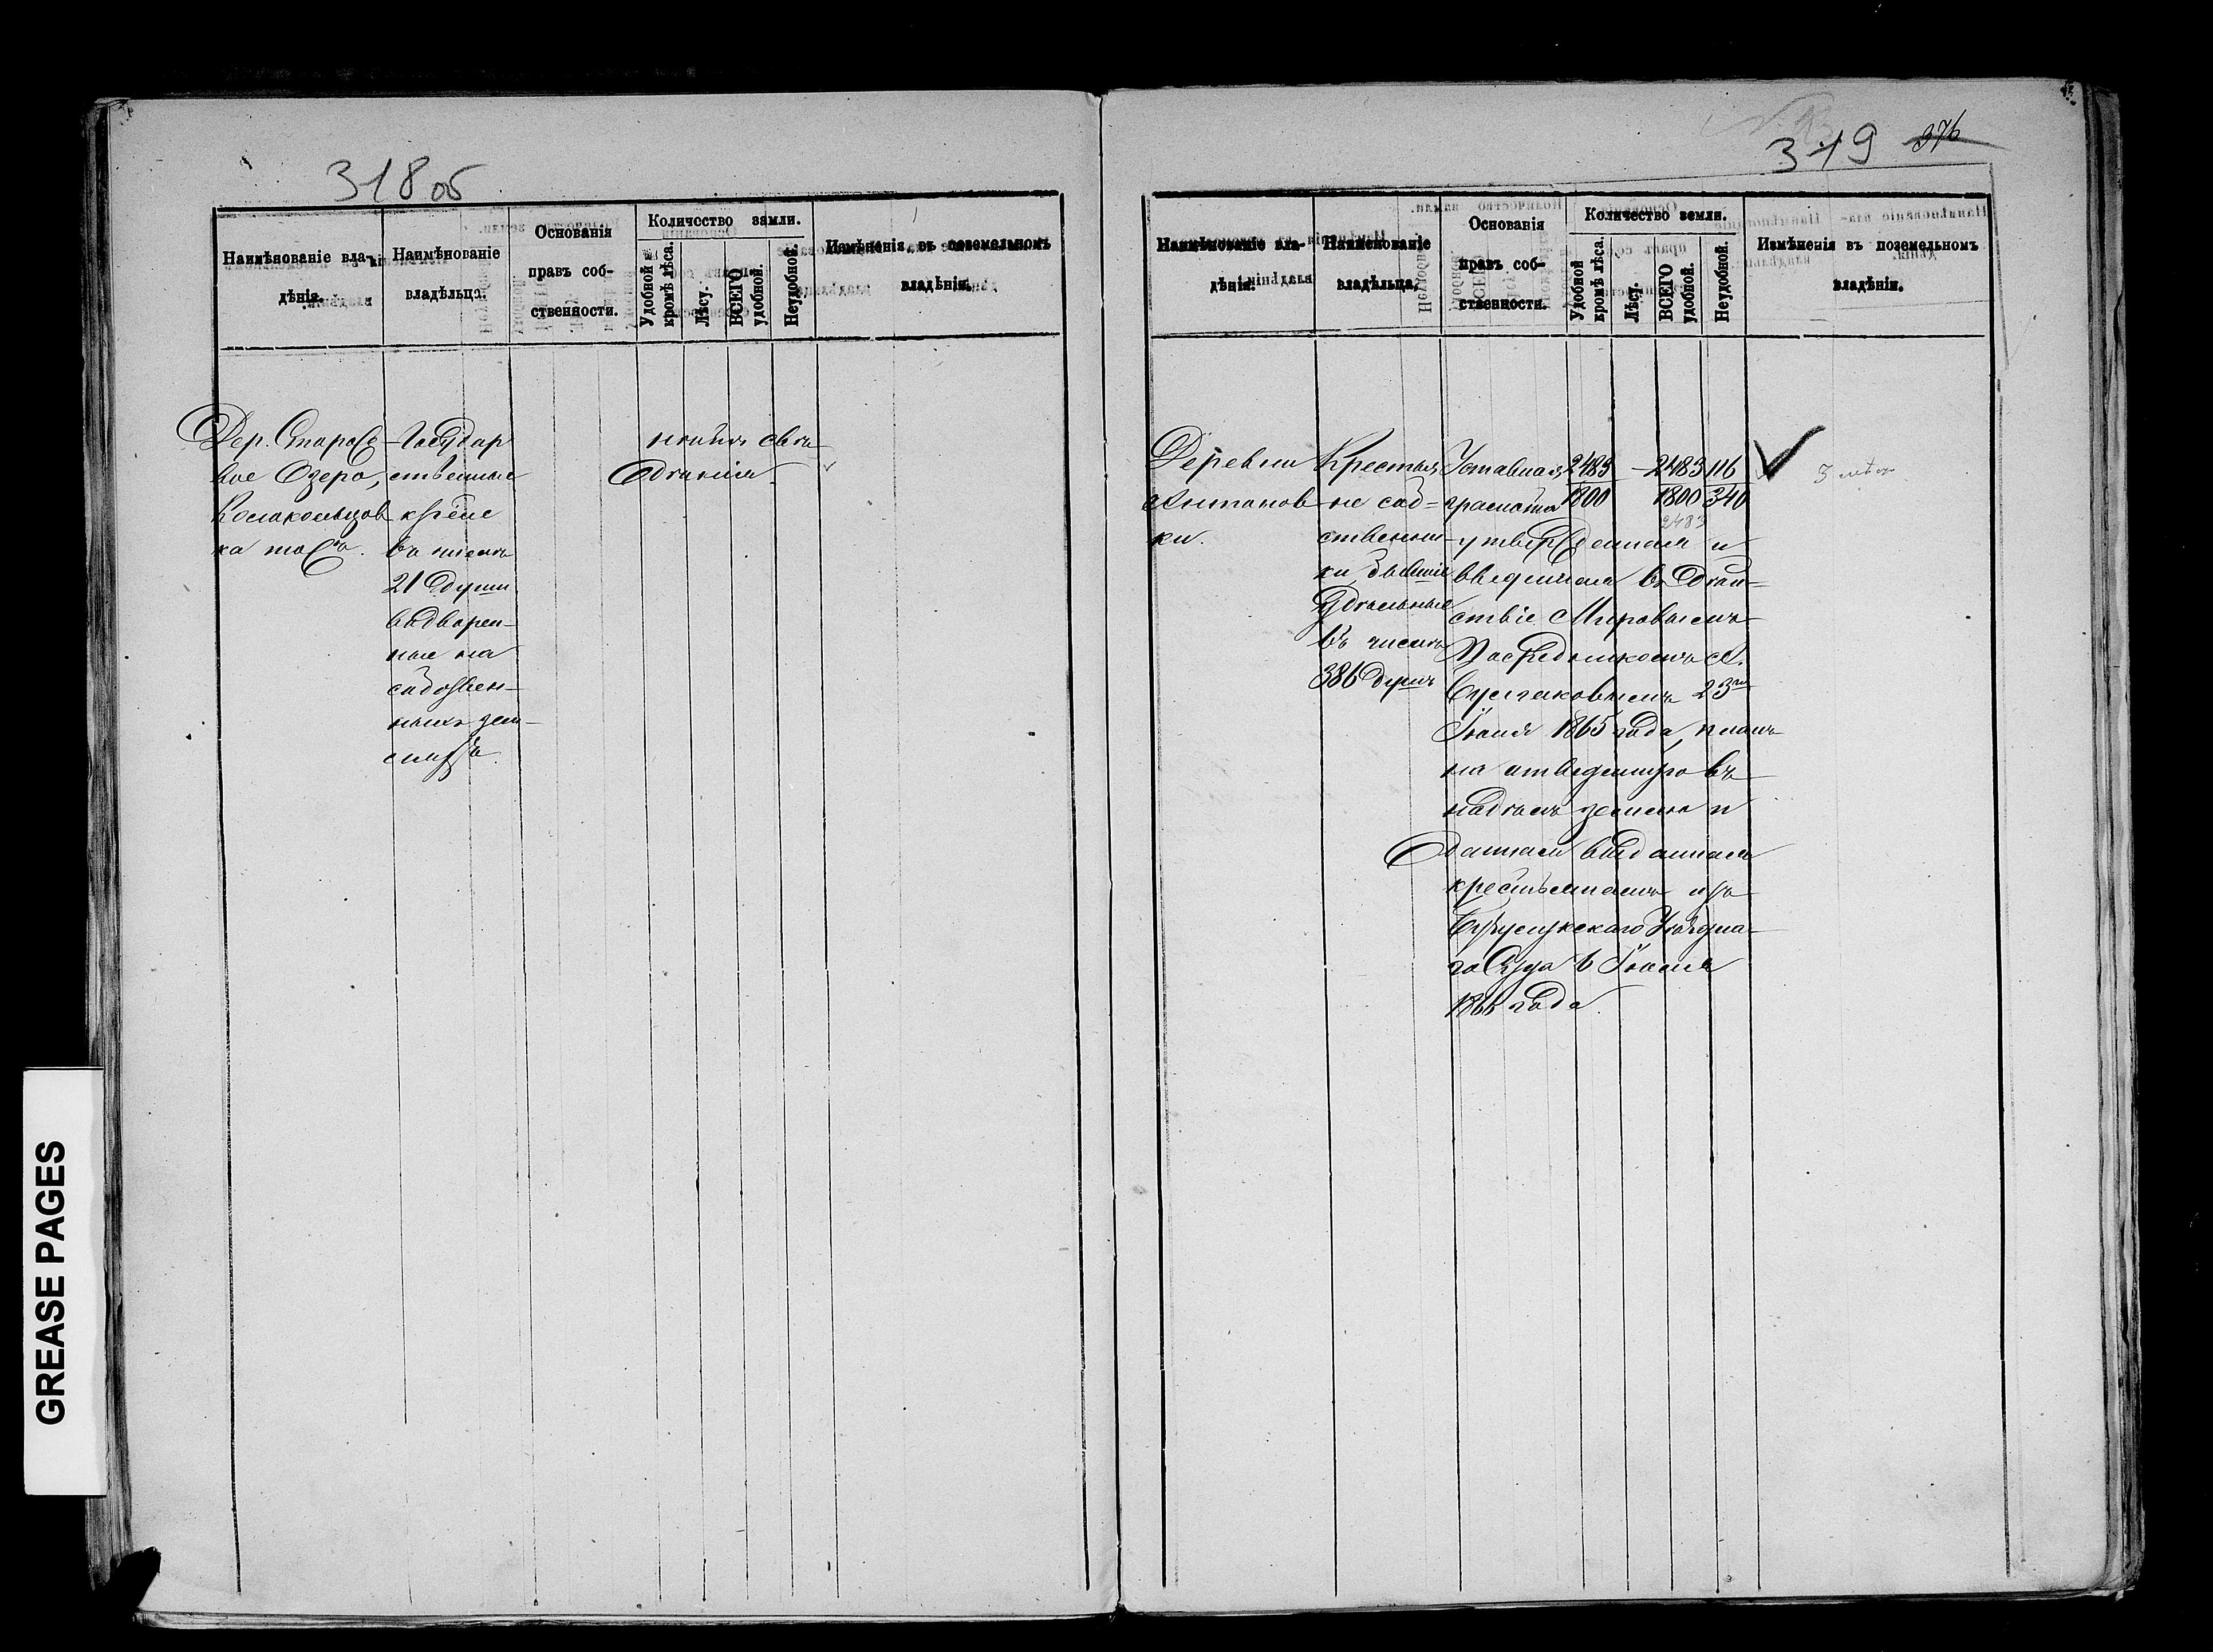 318 об
Наимѣнованіе вла-
дѣнія.
Наимѣнованіе
владѣльца.
Основанія
правъ соб-
ственности.
Количество земли.
Удобной
кромѣ лѣса.
Лѣсу.
ВСЕГО
удобной.
Неудобной.
Измѣненія въ поземельномъ
владѣніи.
Дер.
вое Озеро,
Колокольцов
ка тожъ.
Государ
ственные
въ числѣ
21 души
водворен-
ные на
собствен-
ныхъ зем-
нѣтъ свѣ
дѣнія
319 376
Наимѣнованіе вла-
дѣнія.
Наимѣнованіе
владѣльца.
Основанія
правъ соб-
ственности.
Количество земли.
Удобной
кромѣ лѣса.
Лѣсу.
ВСЕГО
удобной.
Неудобной.
Измѣненія въ поземельномъ
владѣніи.
Деревни
Антонов
ки.
Крестья
не соб=
ственни
ки, бывшіе
Удѣльные
въ числѣ
386 душъ
Уставная
грамота
утвержденная и
введенная въ дѣй-
ствіе Мировымъ
Посредникомъ А.
23го
Іюня 1865 года, планъ
на отведенную въ
надѣлъ землю и
данная выданная
крестьянамъ изъ
Бузулукскаго Уѣздна-
го Суда 6 Іюля
1866 года.
2483 - 2483 116
1800 1800 340
2483
GREASE PAGES